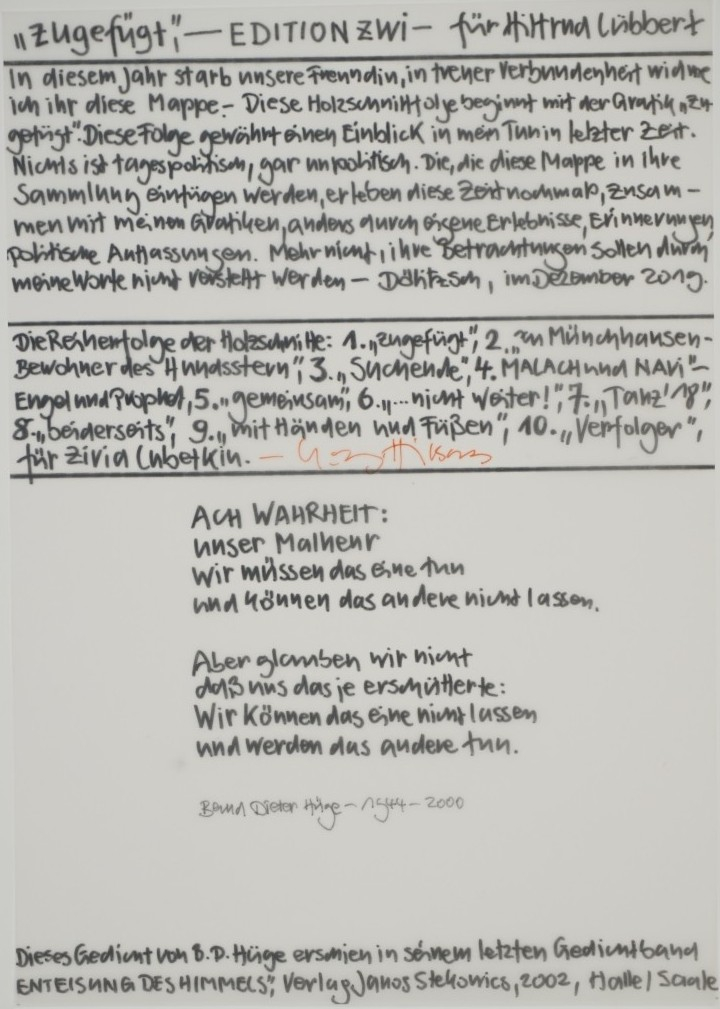 „zugefügt“, — EDITION ZWI — für Hiltrud Lübbert
In diesem Jahr starb unsere Freundin, in treuer Verbundenheit widme
ich ihr diese Mappe. – Diese Holzschnittfolge beginnt mit der Grafik „zu-
gefügt“. Diese Folge gewährt einen Einblick in mein Tun in letzter Zeit.
Nichts ist tagespolitisch, gar unpolitisch. Die, die diese Mappe in ihre
Sammlung einfügen werden, erleben diese Zeit nochmals, zusam –
men mit meinen Grafiken, anders durch eigene Erlebnisse, Erinnerungen,
politische Auffassungen. Mehr nicht, ihre Betrachtungen sollen durch
meine Worte nicht verstellt werden — Dölitzsch, im Dezember 2019.
Die Reihenfolge der Holzschnitte: 1. „zugefügt“, 2. „an Münchhausen-
Bewohner des Hundsstern“, 3. „Suchende“, 4. MALACH und NAVI“ –
Engel und Prophet, 5. „gemeinsam“, 6. „... nicht weiter!“, 7. „Tanz '18“,
8. „beiderseits“, 9. „mit Händen und Füßen“, 10. „Verfolger“,
für Zivia Lubetkin. —
ACH WAHRHEIT:
unser Malheur
wir müssen das eine tun
und können das andere nicht lassen.
Aber glauben wir nicht
daß uns das je erschütterte:
Wir können das eine nicht lassen
und werden das andere tun.
Bernd Dieter Hüge – 1944 – 2000
Dieses Gedicht von B.D. Hüge erschien in seinem letzten Gedichtband
ENTEISUNG DES HIMMELS“, Verlag Janos Stekovics, 2002, Halle / Saale